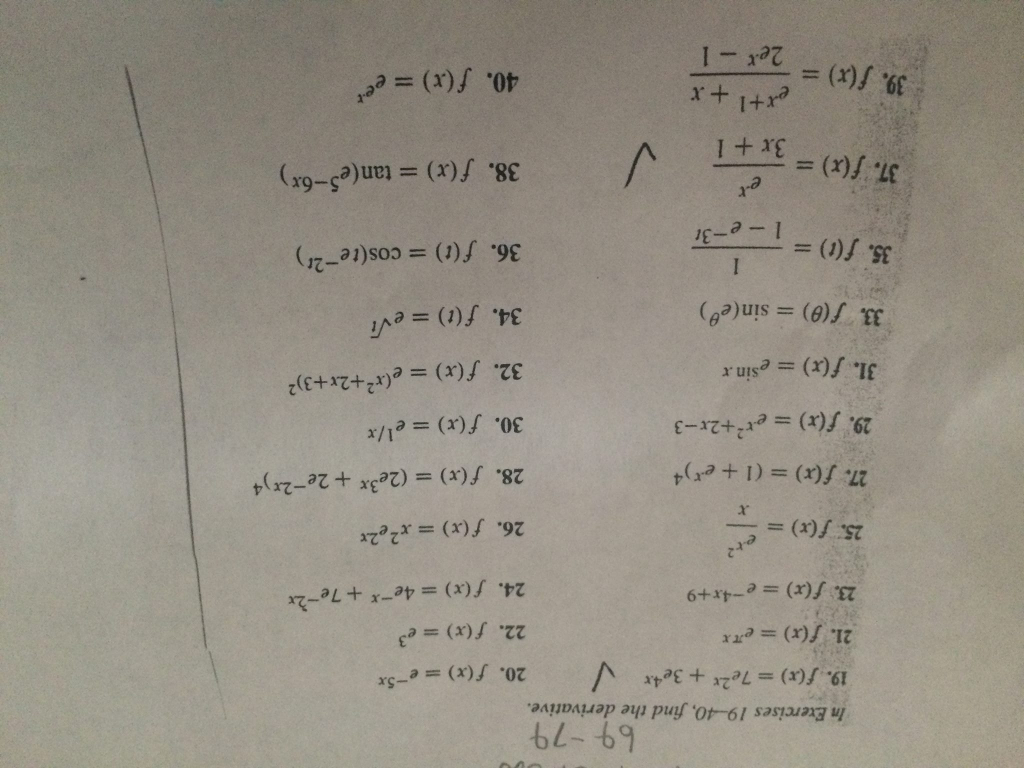 69-79
In Exercises 19–40, find the derivative.
19. f(x) = 7e^{2x} + 3e^{4x} ✓ 20. f(x) = e^{-5x}
21. f(x) = e^{πx} 22. f(x) = e^3
23. f(x) = e^{-4x+9} 24. f(x) = 4e^{-x} + 7e^{-2x}
25. f(x) = \frac{e^{x^2}}{x} 26. f(x) = x^2e^{2x}
27. f(x) = (1 + e^x)^4 28. f(x) = (2e^{3x} + 2e^{-2x})^4
29. f(x) = e^{x^2+2x-3} 30. f(x) = e^{1/x}
31. f(x) = e^{sin x} 32. f(x) = e^{(x^2+2x+3)^2}
33. f(θ) = sin(e^θ) 34. f(t) = e^{√t}
35. f(t) = \frac{1}{1 - e^{-3t}} 36. f(t) = cos(te^{-2t})
37. f(x) = \frac{e^x}{3x + 1} ✓ 38. f(x) = tan(e^{5-6x})
39. f(x) = \frac{e^{x+1} + x}{2e^x - 1} 40. f(x) = e^{e^x}